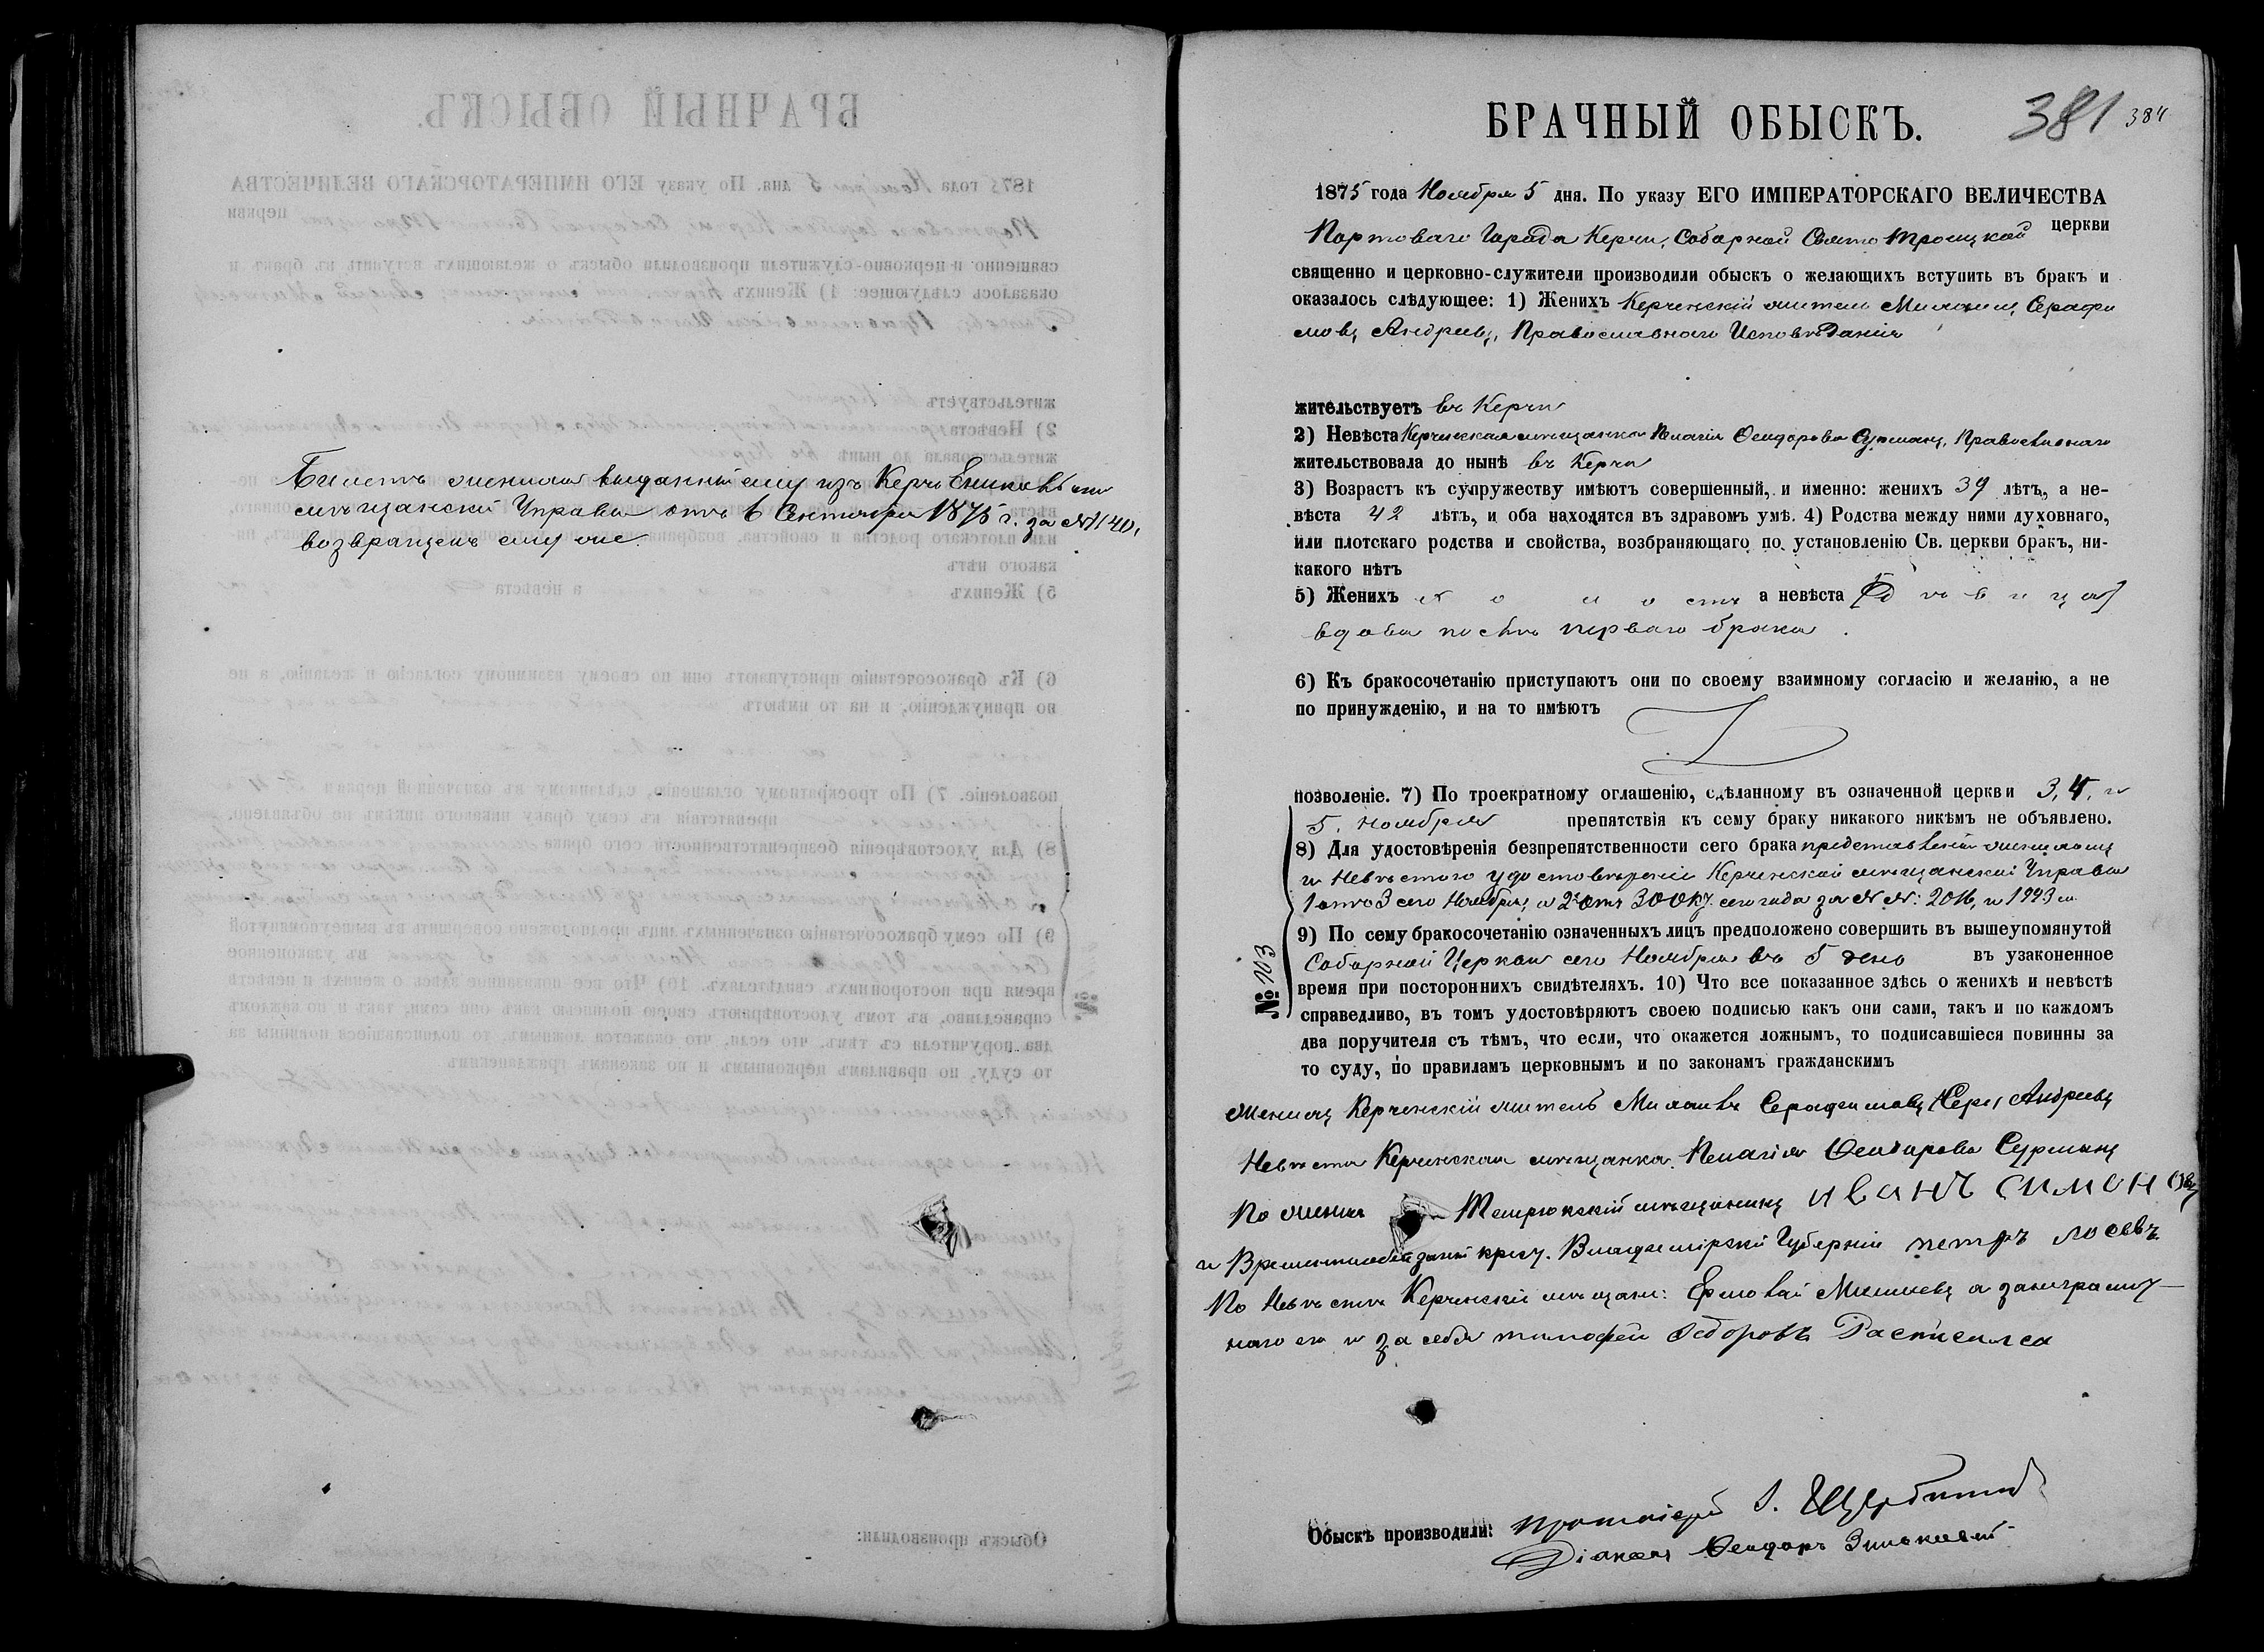 Билетъ жениха выданный ему изъ Керчь Еникольской
мѣщанской Управы отъ 6 Сентября 1875 г. за № 1140,
возвращенъ ему же.
БРАЧНЫЙ ОБЫСКЪ.
381 384
1875 года Ноября 5 дня. По указу ЕГО ИМПЕРАТОРСКАГО ВЕЛИЧЕСТВА
Портоваго Города Керчи, Соборной Свято Троицкой церкви
священно и церковно-служители производили обыскъ о желающихъ вступить въ бракъ и
оказалось слѣдующее: 1) Женихъ Керченскій житель Серафи
мовъ Андреевъ, Православнаго Исповѣданія
жительствуетъ въ Керчи
2) Невѣста Керченская мѣщанка Пелагія Феодорова Православнаго
жительствовала до нынѣ въ Керчи
3) Возрастъ къ супружеству имѣютъ совершенный, и именно: женихъ 39 лѣтъ, а не-
вѣста 42 лѣтъ, и оба находятся въ здравомъ умѣ. 4) Родства между ними духовнаго,
или плотскаго родства и свойства, возбраняющаго по установленію Св. церкви бракъ, ни-
какого нѣтъ
5) Женихъ холостъ а невѣста [дѣвица]
вдова послѣ перваго брака.
6) Къ бракосочетанію приступаютъ они по своему взаимному согласію и желанію, а не
по принужденію, и на то имѣютъ
позволеніе. 7) По троекратному оглашенію, сдѣланному въ означенной церкви 3, 4, и
5, ноября препятствія къ сему браку никакого никѣмъ не объявлено.
8) Для удостовѣренія безпрепятственности сего брака представлены женихомъ
и Невѣстою удостовѣренія Керченской мѣщанской Управы
1 отъ 3 сего Ноября, и 2е отъ 30 Окт. сего года за № №: 2016, и 1993 м.
9) По сему бракосочетанію означенныхъ лицъ предположено совершить въ вышеупомянутой
Соборной Церкви сего Ноября въ 5 день въ узаконенное
время при постороннихъ свидѣтеляхъ. 10) Что все показанное здѣсь о женихѣ и невѣстѣ
№ 103
справедливо, въ томъ удостовѣряютъ своею подписью какъ они сами, такъ и по каждомъ
два поручителя съ тѣмъ, что если, что окажется ложнымъ, то подписавшіеся повинны за
то суду, по правиламъ церковнымъ и по законамъ гражданскимъ
Женихъ Керченскій житель Серафимовъ Андреевъ
Невѣста Керченская мѣщанка Пелагія Феодорова
По женихѣ Темрюкскій мѣщанинъ иванъ симоновъ
и Временнообязаный крест. Владимірской Губерніи петръ лосевъ
По Невѣстѣ Керченскіе мѣщане: Ермолай а за неграмот-
наго его и за себя тимофей Федоровъ Расписился
Обыскъ производили: протоіерей І.
Діаконъ Феодоръ